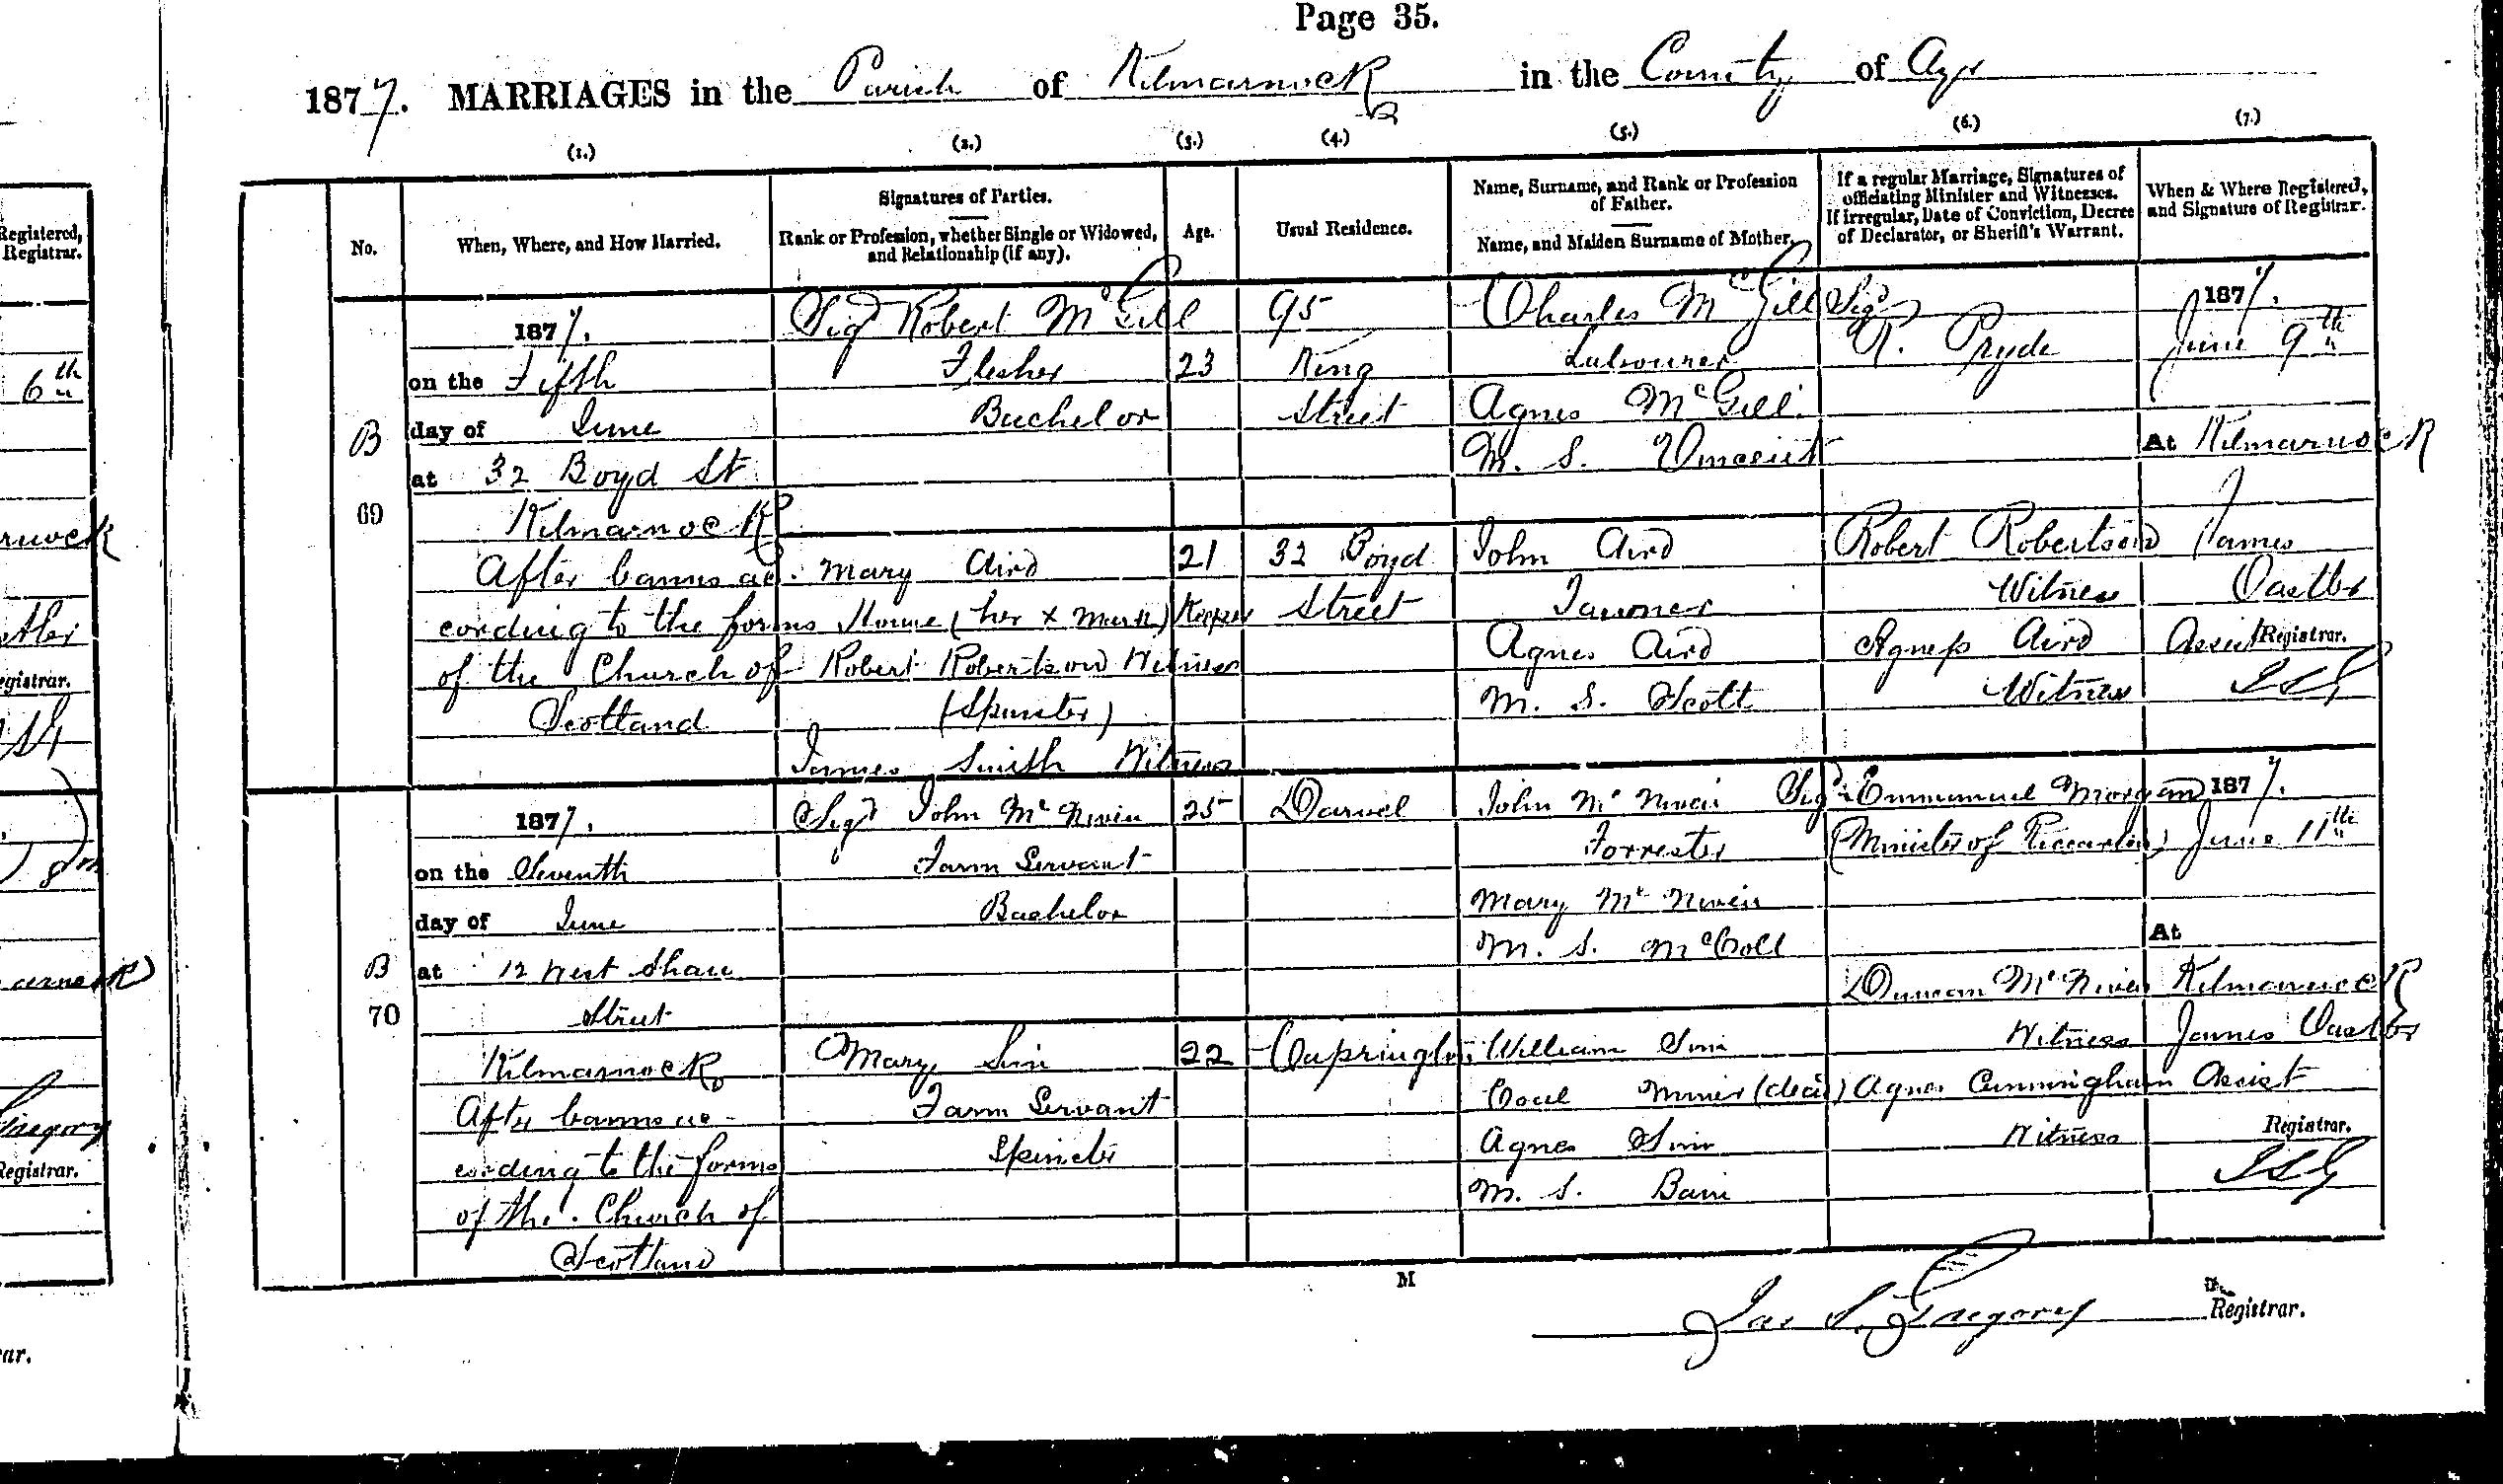 Page 35.
1877. MARRIAGES in the Parish of Kilmarnock in the County of Ayr
(1.) (2.) (3.) (4.) (5.) (6.) (7.)
No.
When, Where, and How Married.
Signatures of Parties.
Rank or Profession, whether Single or Widowed,
and Relationship (if any).
Age.
Usual Residence.
Name, Surname, and Rank or Profession
of Father.
Name, and Maiden Surname of Mother.
If a regular Marriage, Signatures of
officiating Minister and Witnesses.
If irregular, Date of Conviction, Decree
of Declarator, or Sheriff's Warrant.
When & Where Registered,
and Signature of Registrar.
B
69
1877.
on the Fifth
day of June
at 32 Boyd St
Kilmarnock
After banns ac-
cording to the forms
of the Church of
Scotland
Sigd Robert McGill
Flesher
Bachelor
Mary Aird
House (her x mark) Keeper
Robert Robertson Witness
(Spinster)
James Smith Witness
23
21
95
King
Street
32 Boyd
Street
Charles McGill
Labourer
Agnes McGill
M. S.
John Aird
Agnes Aird
M. S. Scott
Sigd
R. Pryde
Robert Robertson
Witness
Agness Aird
Witness
1877.
June 9th
At Kilmarnock
James
Assist Registrar.
B
70
1877.
on the Seventh
day of June
at 12 West Shaw
Street
Kilmarnock
After banns ac-
cording to the forms
of the Church of
Scotland
Sigd John McNiven
Farm Servant
Bachelor
Mary Sim
Farm Servant
Spinster
25
22
Darvel
Caprington
John McNiven
Forrester
Mary McNiven
M. S. McColl
William Sim
Coal Miner (decd)
Agnes Sim
M. S. Bain
Sigd Emmanuel Morgan
(Minister of Riccarton)
Duncan McNiven
Witness
Agnes Cunningham
Witness
1877.
June 11th
At
Kilmarnock
James
Assist
Registrar.
M
Jas S. Gregory Registrar.
Registered,
Registrar.
6th
Registrar.
Gregory
Registrar.